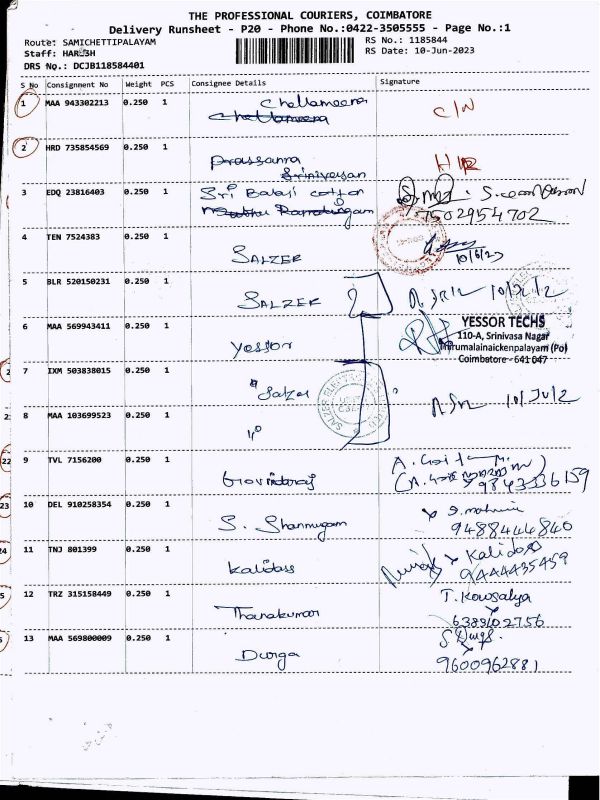 THE PROFESSIONAL COURIERS, COIMBATORE
Delivery Runsheet - P20 - Phone No.:0422-3505555 - Page No.:1
Route: SAMICHETTIPALAYAM
RS No.: 1185844
Staff: HARISH
RS Date: 10-Jun-2023
DRS No.: DCJB118584401
S No Consignment No Weight PCS Consignee Details Signature
1 MAA 943302213 0.250 1 Chellameera C/N
Chellameera
2 HRD 735854569 0.250 1 Prassanna
Srinivasan
3 EDQ 23816403 0.250 1 Sri Balaji cotton
7502954702
4 TEN 7524383 0.250 1 SALZER 10/6/23
5 BLR 520150231 0.250 1 SALZER 2
6 MAA 569943411 0.250 1 Yessor
YESSOR TECHS
110-A, Srinivasa Nagar
Thirumalainaickenpalayam (Po)
Coimbatore - 641 047
7 IXM 503838015 0.250 1 Salzer
8 MAA 103699523 0.250 1 "
22 9 TVL 7156200 0.250 1 Govindaraj
9843336159
23 10 DEL 910258354 0.250 1 S. Shanmugam
9488444840
24 11 TNJ 801399 0.250 1 Kalidass Kalidass
9444435459
12 TRZ 315158449 0.250 1 Thanakumar T. Kowsalya
6383102756
13 MAA 569800009 0.250 1 Durga S Durga
9600962881